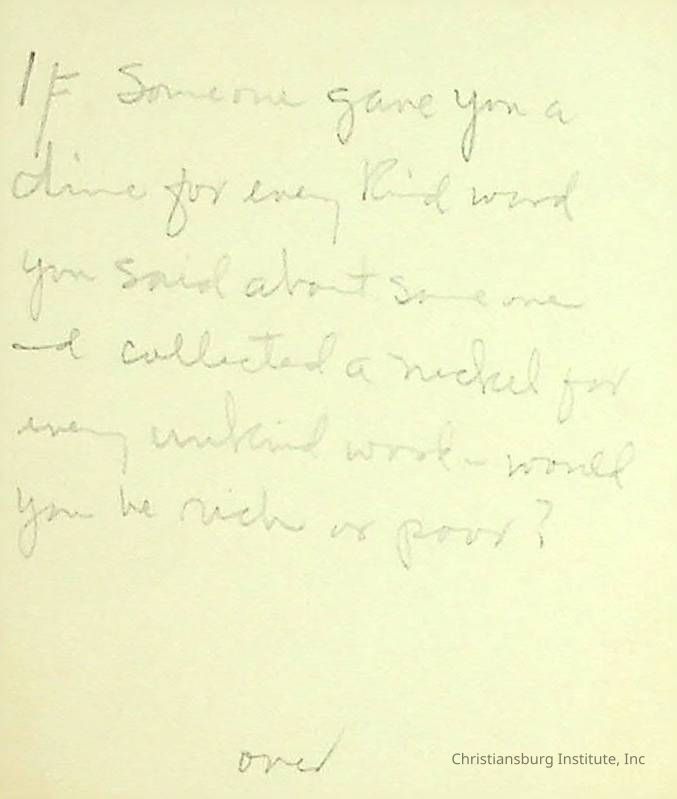 If Someone gave you a
dime for every Kind word
you said about someone
and collected a nickel for
every unkind word - would
you be rich or poor?
over
Christiansburg Institute, Inc